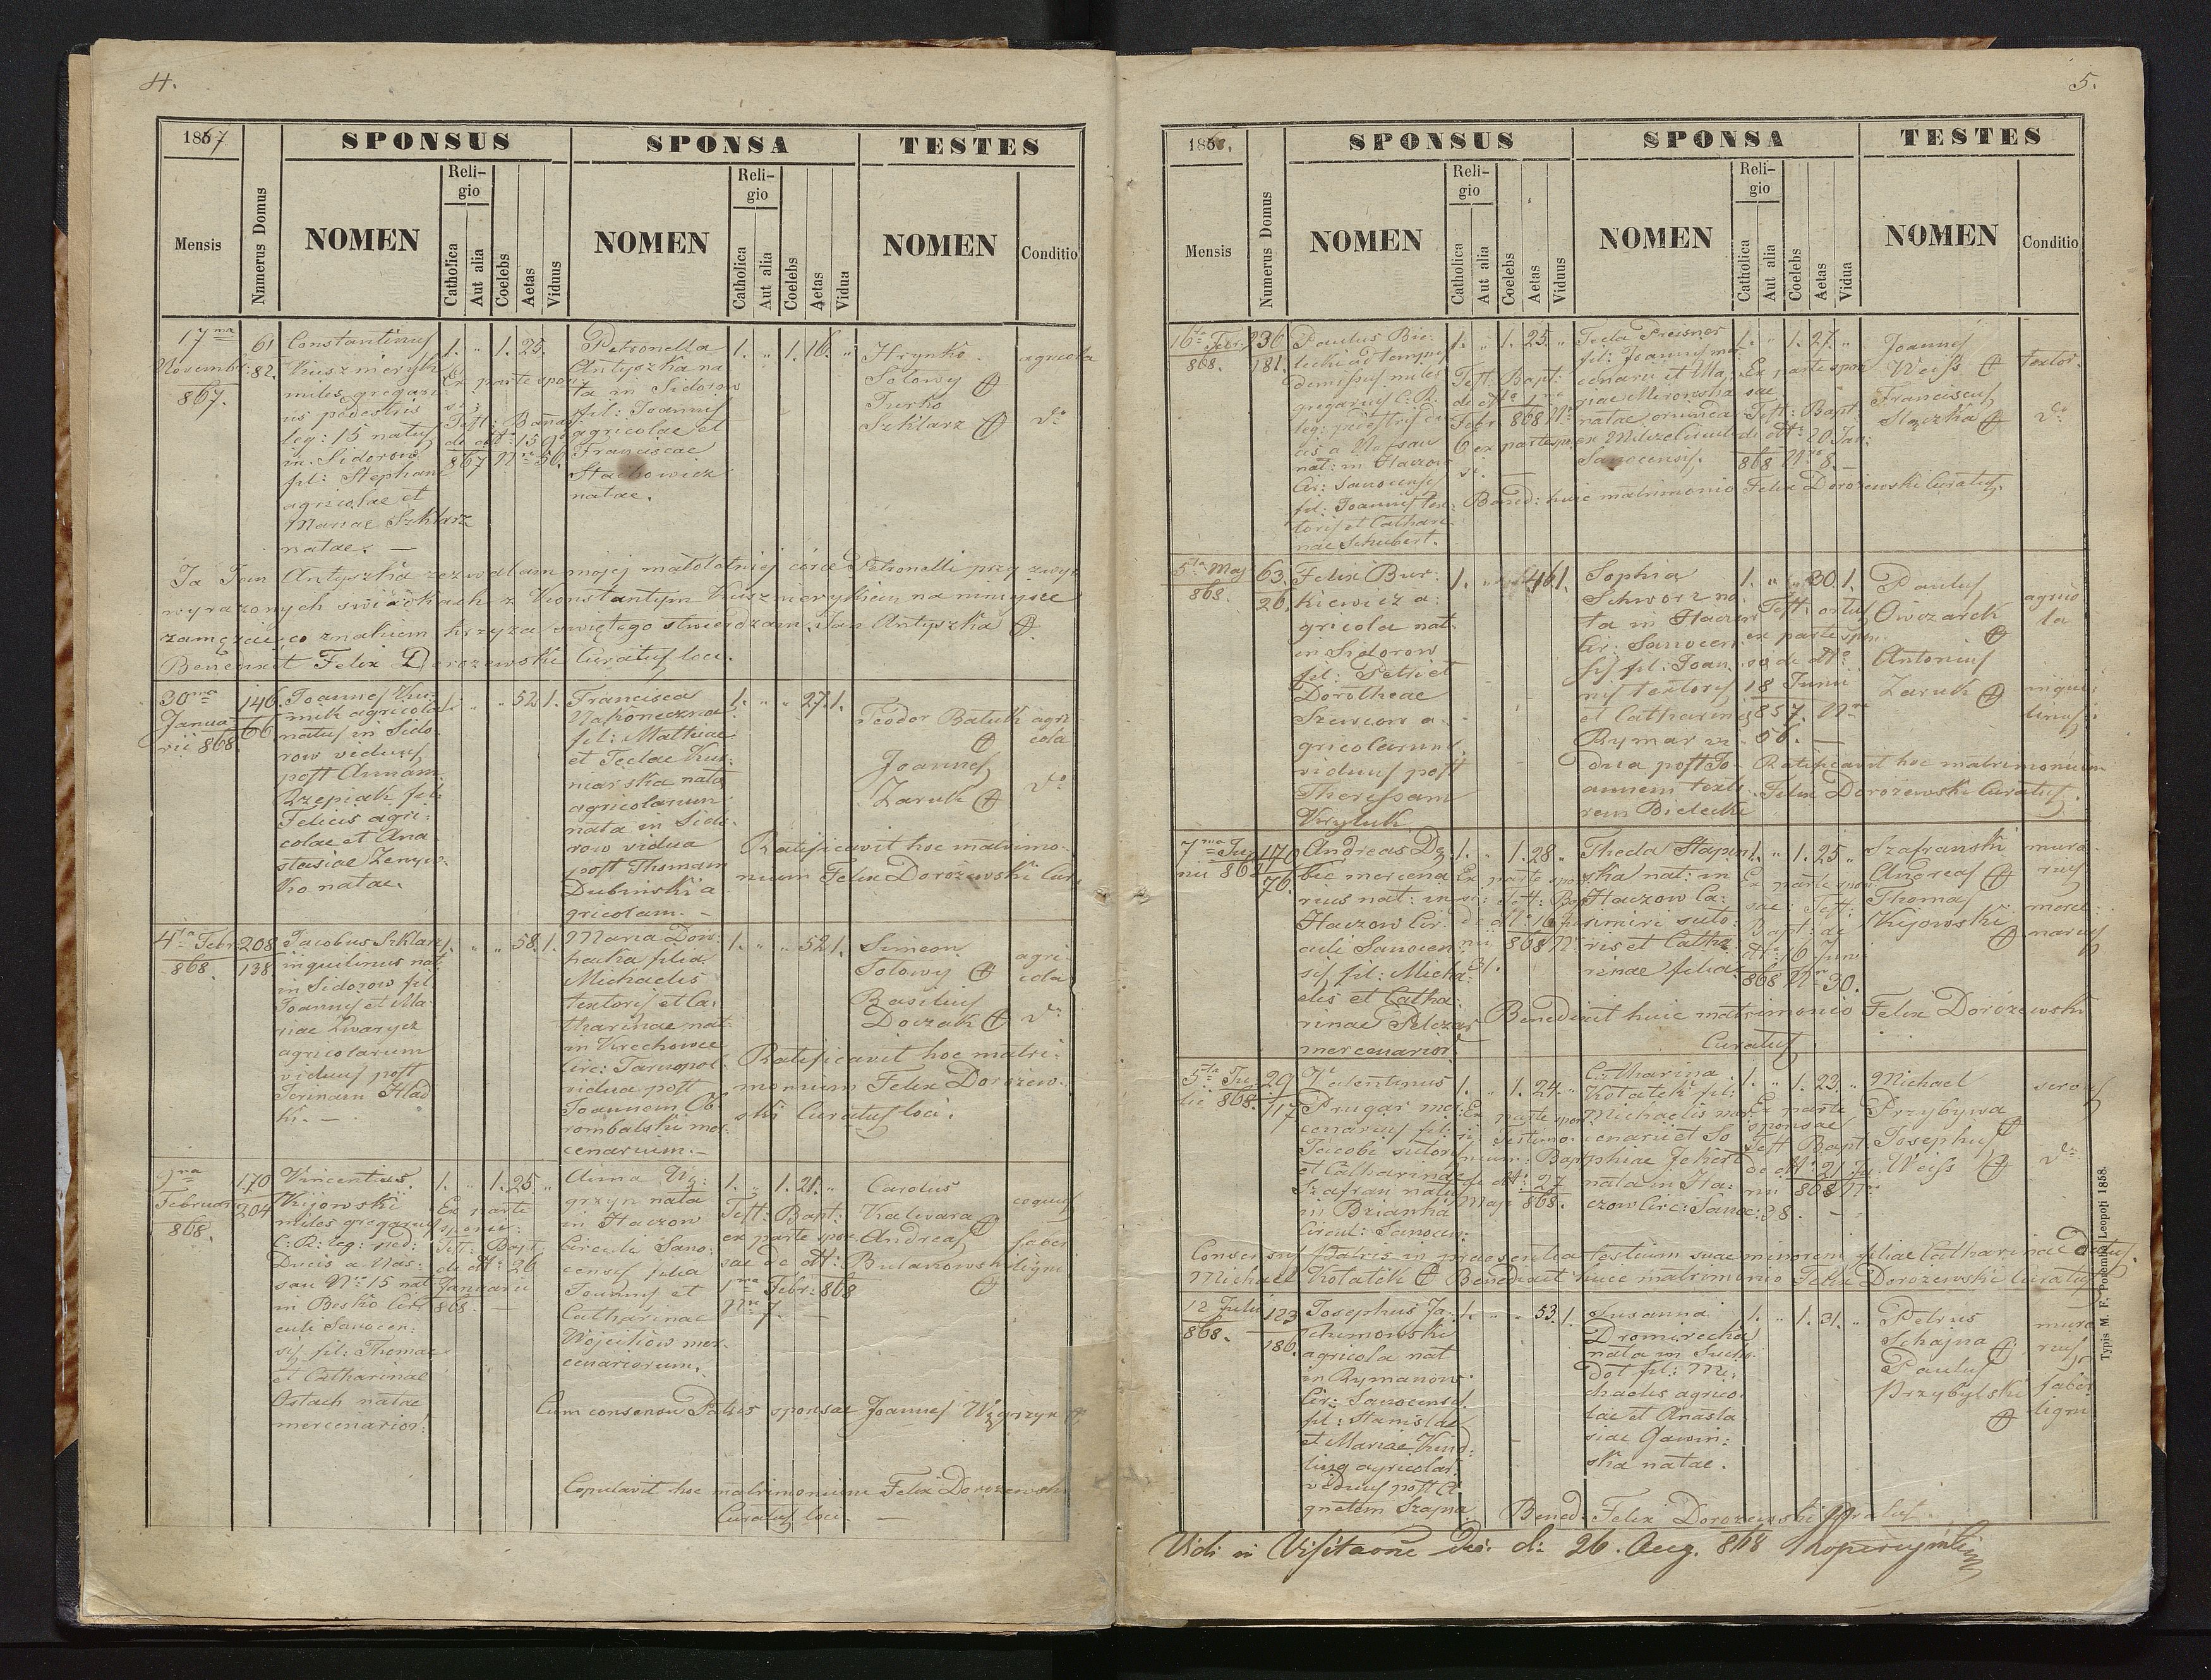 4.
1867.
SPONSUS
SPONSA
TESTES
Mensis
Nnmerus Domus
NOMEN
Reli-
gio
Catholica
Aut alia
Coelebs
Aetas
Viduus
NOMEN
Reli-
gio
Catholica
Aut alia
Coelebs
Aetas
Vidua
NOMEN
Conditio
17ma
Novembr:
867.
61
82.
Constantinus
Kusznieryk
miles gregari
us pedestris
leg: 15 natus
in Sidorow
fil: Stephani
agricolae et
Mariae Szklarz
natae. —
1. „ 1. 25.
Ex parte spon
si;
867 Nro 56.
Petronella
Antyszka na
ta in Sidorow
fil: Joannis
agricolae et
Franciscae
Stachowicz
natae.
1. „ 1. 16. „
Hrynko
Sołowy
Jurko
Szklarz
agricola
do
Ja Jan Antyszka zezwalam mojej małoletniej córce Petronelli przy zwyż
wyrażonych świadkach z Konstantym Kusznierykiem na niniejsze
zamęzcie, co znakiem krzyża świętego stwierdzam. Jan Antyszka
Benedixit Felix Dorożewski Curatus loci.
30ma
Janua
rii 868.
146.
66
Joannes Kus
agricola
natus in Sido
row viduus
post Annam
Rzepiak fil:
Felicis agri:
colae et Ana
stasiae
ko natae.
1. „ „ 52 1.
Francisca
Nakoneczna
fil: Mathiae
et Teclae Kus
niarska nata
agricolarum
nata in Sido
row vidua
post Thomam
Dubinski a
gricolam. —
1. „ „ 27. 1.
Teodor Baluk
Joannes
Zaruk
agri
cola
do
Ratificavit hoc matrimo-
nium Felix Dorożewski Cura
4ta Febr
868.
208
138
Jacobus Szklarz
inquilinus nat
in Sidorow fil:
Joannis et Ma
riae Zwarycz
agricolarum
viduus post
Irinam Hlad
ki. —
1. „ „ 58. 1.
Maria Dow
hacka filia
Michaelis
textoris et Ca
tharinae nat:
in Krechowce
Circ: Tarnopol
vidua post
Joannem Ob
rombalski mer
cenarium. —
1. „ „ 52. 1.
Simeon
Sołowy
Basilius
Doczak
agri
cola
do
Ratificavit hoc matri:
monium Felix Dorożew
ski Curatus loci.
9na
Februar
868.
170
204
Vincentius
Kijowski
miles gregarius
C: R: leg: ped:
Ducis a Nas:
sau Nro 15 nat
in Besko Cir
culi Sanocen:
sis fil: Thomae
et Catharinae
Ostach natae
mercenarior:
1. „ 1. 25. „
Ex parte
sponsi:
Test: Bapt
de dto: 26
Januarii
868. —
Anna Wę:
grzyn nata
in Haczow
Circuli Sano:
censis filia
Joannis et
Catharinae
Wojcitiow mer
cenariorum.
1. „ 1. 21. „
Test: Bapt:
ex parte spon
sae de dto:
1ma Febr: 868
Nro 7. —
Carolus
Kalwara
Andreas
Bulakowski
coquus
faber
ligni
Cum consensu Patris sponsae Joannes Węgrzyn
Copulavit hoc matrimonium Felix Dorozewski
Curatus loci. —
5.
186 ,
SPONSUS
SPONSA
TESTES
Mensis
Numerus Domus
NOMEN
Reli-
gio
Catholica
Aut alia
Coelebs
Aetas
Viduus
NOMEN
Reli-
gio
Catholica
Aut alia
Coelebs
Aetas
Vidua
NOMEN
Conditio
16ta Febr
868.
236
181.
Paulus Bie:
lecki ad tempus
demissus miles
gregarius C: R:
leg: pedestris du
cis a Nassau
nat: in Haczow
Cir: Sanocensis
fil: Joannis tex
toris et Cathari
nae Schubert.
1. „ 1. 25. „
Test: Bapt:
de dto 1ma
Febr 868 Nro
6 ex parte spon
si. —
Tecla Preisner
fil: Joannis mer
cenarii et Ma
gae Mrowska
natae oriunda
ex Milcza Circuli
Sanocensis.
1. „ 1. 27. „
Ex parte spon
sae
Test: Bapt
de dto 20 Jan:
868 Nro 8. —
Joannes
Weiss
Franciscus
Stączka
textor
do
Bened: huic matrimonio Felix Dorożewski Curatus.
5ta Maj
868.
63.
26.
Felix Bur:
kiewicz a:
gricola nat
in Sidorow
fil: Petri et
Dorotheae
Szewców a
gricolarum
viduus post
Theressam
Kryluk
1. „ 46 1.
Sophia
Schworz na
ta in Haczow
Cir: Sanocen
sis fil: Joan
nis textoris
et Catharinae
Rymar vi
dua post Jo
annem texto
rem Bielecki
1. „ „ 30 1.
Test: ortus
ex parte spon
sa de dto
18 Junii
857. Nro
56. —
Paulus
Owczarek
Antonius
Zaruk
agrico
la
inqui
linus
Ratificavit hoc matrimonium
Felix Dorożewski Curatus.
7ma Ju
nii 868
170
76.
Andreas Dę
bic mercena
rius nat: in
Haczow Cir:
culi Sanocen
sis fil: Micha
elis et Catha
rinae Pelczar
mercenarior
1. „ 1. 28 „
Ex parte spon
si: Test: Bap
de dto 16 Ju
nii 868 Nro
31.
Thecla Stapin
ska nat: in
Haczow Ca:
simiri suto:
ris et Catha
rinae filia
1. „ 1. 25 „
Ex parte spon
sae: Test:
Bapt: de
dto: 16 Juni
868 Nro 30.
Szafranski
Andreas
Thomas
Kijowski
mura
rius
merce
narius
Benedixit huic matrimonio Felix Dorożewski
Curatus
5ta Ju
lii 868.
29
117
Valentinus
Prugar mer
cenarius fil:
Jacobi sutoris
et Catharinae
Szafran natus
in Brzianka
Circul: Sanocen:
1. „ 1. 24. „
Ex parte spon
si Testimo
nium Bapt
de dto: 27
Maji 868.
Catharina
Kotatek fil:
Michaelis mer
cenarii et So
phiae Jekiert
nata in Ha:
czow Circ: Sanoc:
1. „ 1. 23. „
Ex parte
sponsae
Test Bapt
de dto: 21 Ju
nii 868 Nro
38. —
Michael
Przybywa
Josephus
Weiss
do
Consensus Patris in praesentia testium suae minorem filiae Catharinae datus.
Michael Kotatek Benedixit huic matrimonio Felix Dorożewski Curatus
12 Julii
868.
123
186.
Josephus Ja
chimowski
agricola nat
in Rymanow
Cir: Sanocensis
fil: Stanislai
et Mariae Kind
ling agricolar:
viduus post A
gnetem Szajna
1. „ „ 53. 1.
Susanna
Dromirecka
nata in Sucho
dol fil: Mi:
chaelis agrico
lae et Anasta
siae Gawin:
ska natae.
1. „ 1. 31. „
Petrus
Schajna
Paulus
Przybylski
mura
rius
faber
ligni
Bened: Felix Dorożewski Curatus.
Typis M. F. Poremba Leopoli 1858.
Vidi in Visitaone Dec: d: 26. Aug. 868